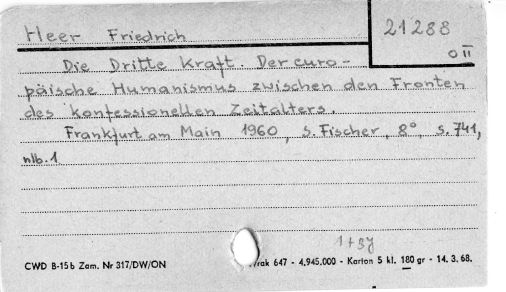 Heer Friedrich
21288
O II
Die Dritte Kraft. Der euro-
päische Humanismus zwischen den Fronten
des konfessionellen Zeitalters.
Frankfurt am Main 1960, S. Fischer, 8°, s. 741,
nlb. 1
1+3j
CWD B-15b Zam. Nr 317/DW/ON
rak 647 - 4.945.000 - Karton 5 kl. 180 gr - 14. 3. 68.